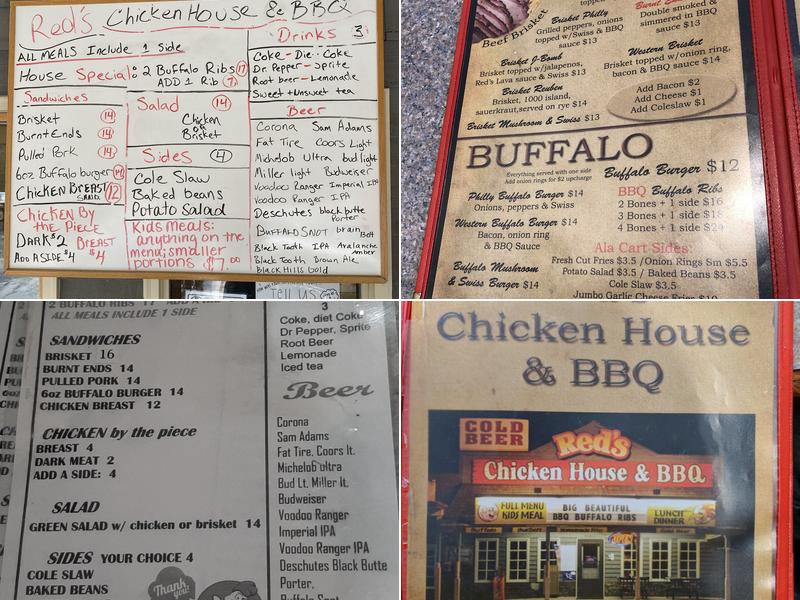 Red's Chicken House & BBQ
ALL MEALS Include 1 Side
House Special: 2 Buffalo Ribs 17
ADD 1 Rib 7
Sandwiches
Brisket 14
Burnt Ends 14
Pulled Pork 14
6oz Buffalo burger 14
Chicken Breast 12
SAND.
Chicken By
the Piece
Dark $2 Breast $4
Add A SIDE $4
Salad 14
Chicken
or
Brisket
Sides 4
Cole Slaw
Baked beans
Potato Salad
Kids meals:
anything on the
menu; smaller
portions $7.00
Drinks 3
Coke - Die. Coke
Dr. Pepper - Sprite
Root beer - Lemonade
Sweet + Unsweet tea
Beer
Corona Sam Adams
Fat Tire Coors Light
Michelob Ultra bud light
Miller light Budweiser
Voodoo Ranger Imperial IPA
Voodoo Ranger IPA
Deschutes black butte
Porter
Buffalo SNOT brain
Belt
Black Tooth IPA Avalanche
Amber
Black Tooth Brown Ale
Black Hills Gold
TELL US
Beef Brisket
Brisket Philly
Grilled peppers, onions
topped w/Swiss & BBQ
sauce $13
Brisket J-Bomb
Brisket topped w/jalapenos,
Red's Lava sauce & Swiss $13
Brisket Reuben
Brisket, 1000 island,
sauerkraut, served on rye $14
Brisket Mushroom & Swiss $13
Burnt
Double smoked &
simmered in BBQ
sauce $13
Western Brisket
Brisket topped w/onion ring,
bacon & BBQ sauce $14
Add Bacon $2
Add Cheese $1
Add Coleslaw $1
BUFFALO
Everything served with one side
Add onion rings for $2 upcharge
Buffalo Burger $12
Philly Buffalo Burger $14
Onions, peppers & Swiss
Western Buffalo Burger $14
Bacon, onion ring
& BBQ Sauce
Buffalo Mushroom
& Swiss Burger $14
BBQ Buffalo Ribs
2 Bones + 1 side $16
3 Bones + 1 side $18
4 Bones + 1 side $24
Ala Cart Sides:
Fresh Cut Fries $3.5 /Onion Rings Sm $5.5
Potato Salad $3.5 / Baked Beans $3.5
Cole Slaw $3,5
Jumbo Garlic Cheese Fries $10
2 BUFFALO RIBS 17
ALL MEALS INCLUDE 1 SIDE
SANDWICHES
BRISKET 16
BURNT ENDS 14
PULLED PORK 14
6oz BUFFALO BURGER 14
CHICKEN BREAST 12
CHICKEN by the piece
BREAST 4
DARK MEAT 2
ADD A SIDE: 4
SALAD
GREEN SALAD w/ chicken or brisket 14
SIDES YOUR CHOICE 4
COLE SLAW
BAKED BEANS
Thank
you!
3
Coke, diet Coke
Dr Pepper, Sprite
Root Beer
Lemonade
Iced tea
Beer
Corona
Sam Adams
Fat Tire, Coors lt.
Michelob ultra
Bud Lt. Miller lt.
Budweiser
Voodoo Ranger
Imperial IPA
Voodoo Ranger IPA
Deschutes Black Butte
Porter,
Buffalo Snot
Chicken House
& BBQ
COLD
BEER
Red's
Chicken House & BBQ
FULL MENU
KIDS MEAL
BIG BEAUTIFUL
BBQ BUFFALO RIBS
LUNCH
DINNER